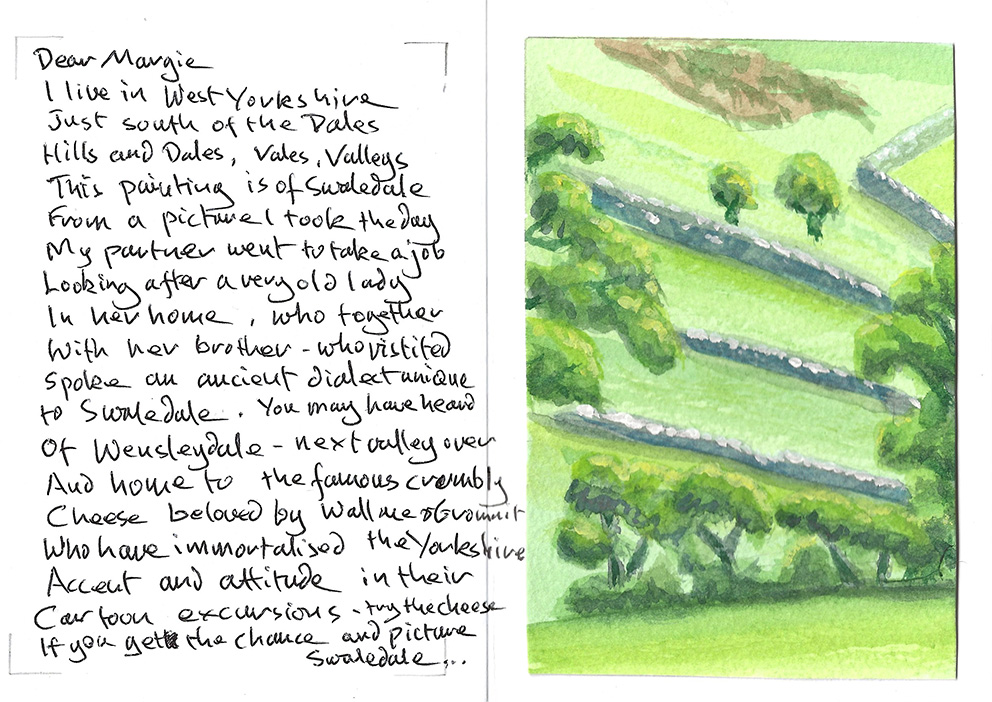 Dear Margie
I live in West Yorkshire
Just south of the Dales
Hills and Dales, Vales, Valleys
This painting is of Swaledale
From a picture I took the day
My partner went to take a job
Looking after a very old lady
In her home, who together
With her brother - who vistited
Spoke an ancient dialect unique
to Swaledale. You may have heard
Of Wensleydale - next valley over
And home to the famous crumbly
Cheese beloved by Wallace & Grommit
Who have immortalised the Yorkshire
Accent and attitude in their
Cartoon excursions - try the cheese
If you get the chance and picture
Swaledale...